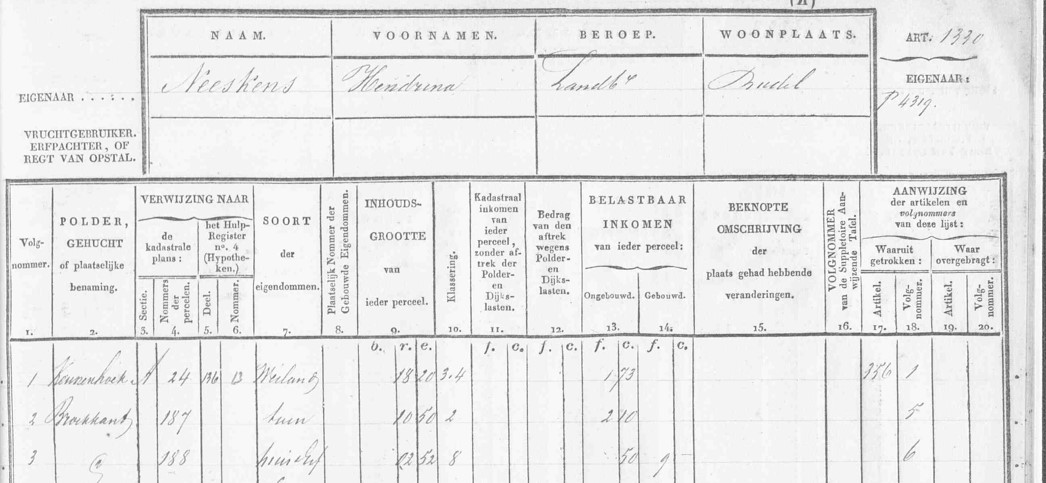 NAAM. VOORNAMEN. BEROEP. WOONPLAATS.
ART. 1330
EIGENAAR ...... Neeskens Hendrina Landbr Budel
EIGENAAR:
P 4319.
VRUCHTGEBRUIKER.
ERFPACHTER, OF
REGT VAN OPSTAL.
Volg-
nommer.
1.
POLDER,
GEHUCHT
of plaatselijke
benaming.
2.
VERWIJZING NAAR
de
kadastrale
plans:
Sectie.
3.
Nommers
der
percelen.
4.
het Hulp-
Register
nº. 4
(Hypothe-
ken.)
Deel.
5.
Nommer.
6.
SOORT
der
eigendommen.
7.
Plaatselijk Nommer der
Gebouwde Eigendommen.
8.
INHOUDS-
GROOTTE
van
ieder perceel.
9.
Klassering.
10.
Kadastraal
inkomen
van
ieder
perceel,
zonder af-
trek der
Polder-
en
Dijks-
lasten.
11.
Bedrag
van den
aftrek
wegens
Polder-
en
Dijks-
lasten.
12.
BELASTBAAR
INKOMEN
van ieder perceel:
Ongebouwd.
13.
Gebouwd.
14.
BEKNOPTE
OMSCHRIJVING
der
plaats gehad hebbende
veranderingen.
15.
VOLGNOMMER
van de Suppletoire Aan-
wijzende Tafel.
16.
AANWIJZING
der artikelen en
volgnommers
van deze lijst:
Waaruit
getrokken:
Artikel.
17.
Volg-
nommer.
18.
Waar
overgebragt:
Artikel.
19.
Volg-
nommer.
20.
b. r. e. f. c. f. c. f. c. f. c.
1 A 24 136 13 Weiland 18 20 3.4 1 73 356 1
2 Broekkant 187 tuin 10 50 2 2 10 5
3 188 huis & erf 02 52 8 50 9 - 6